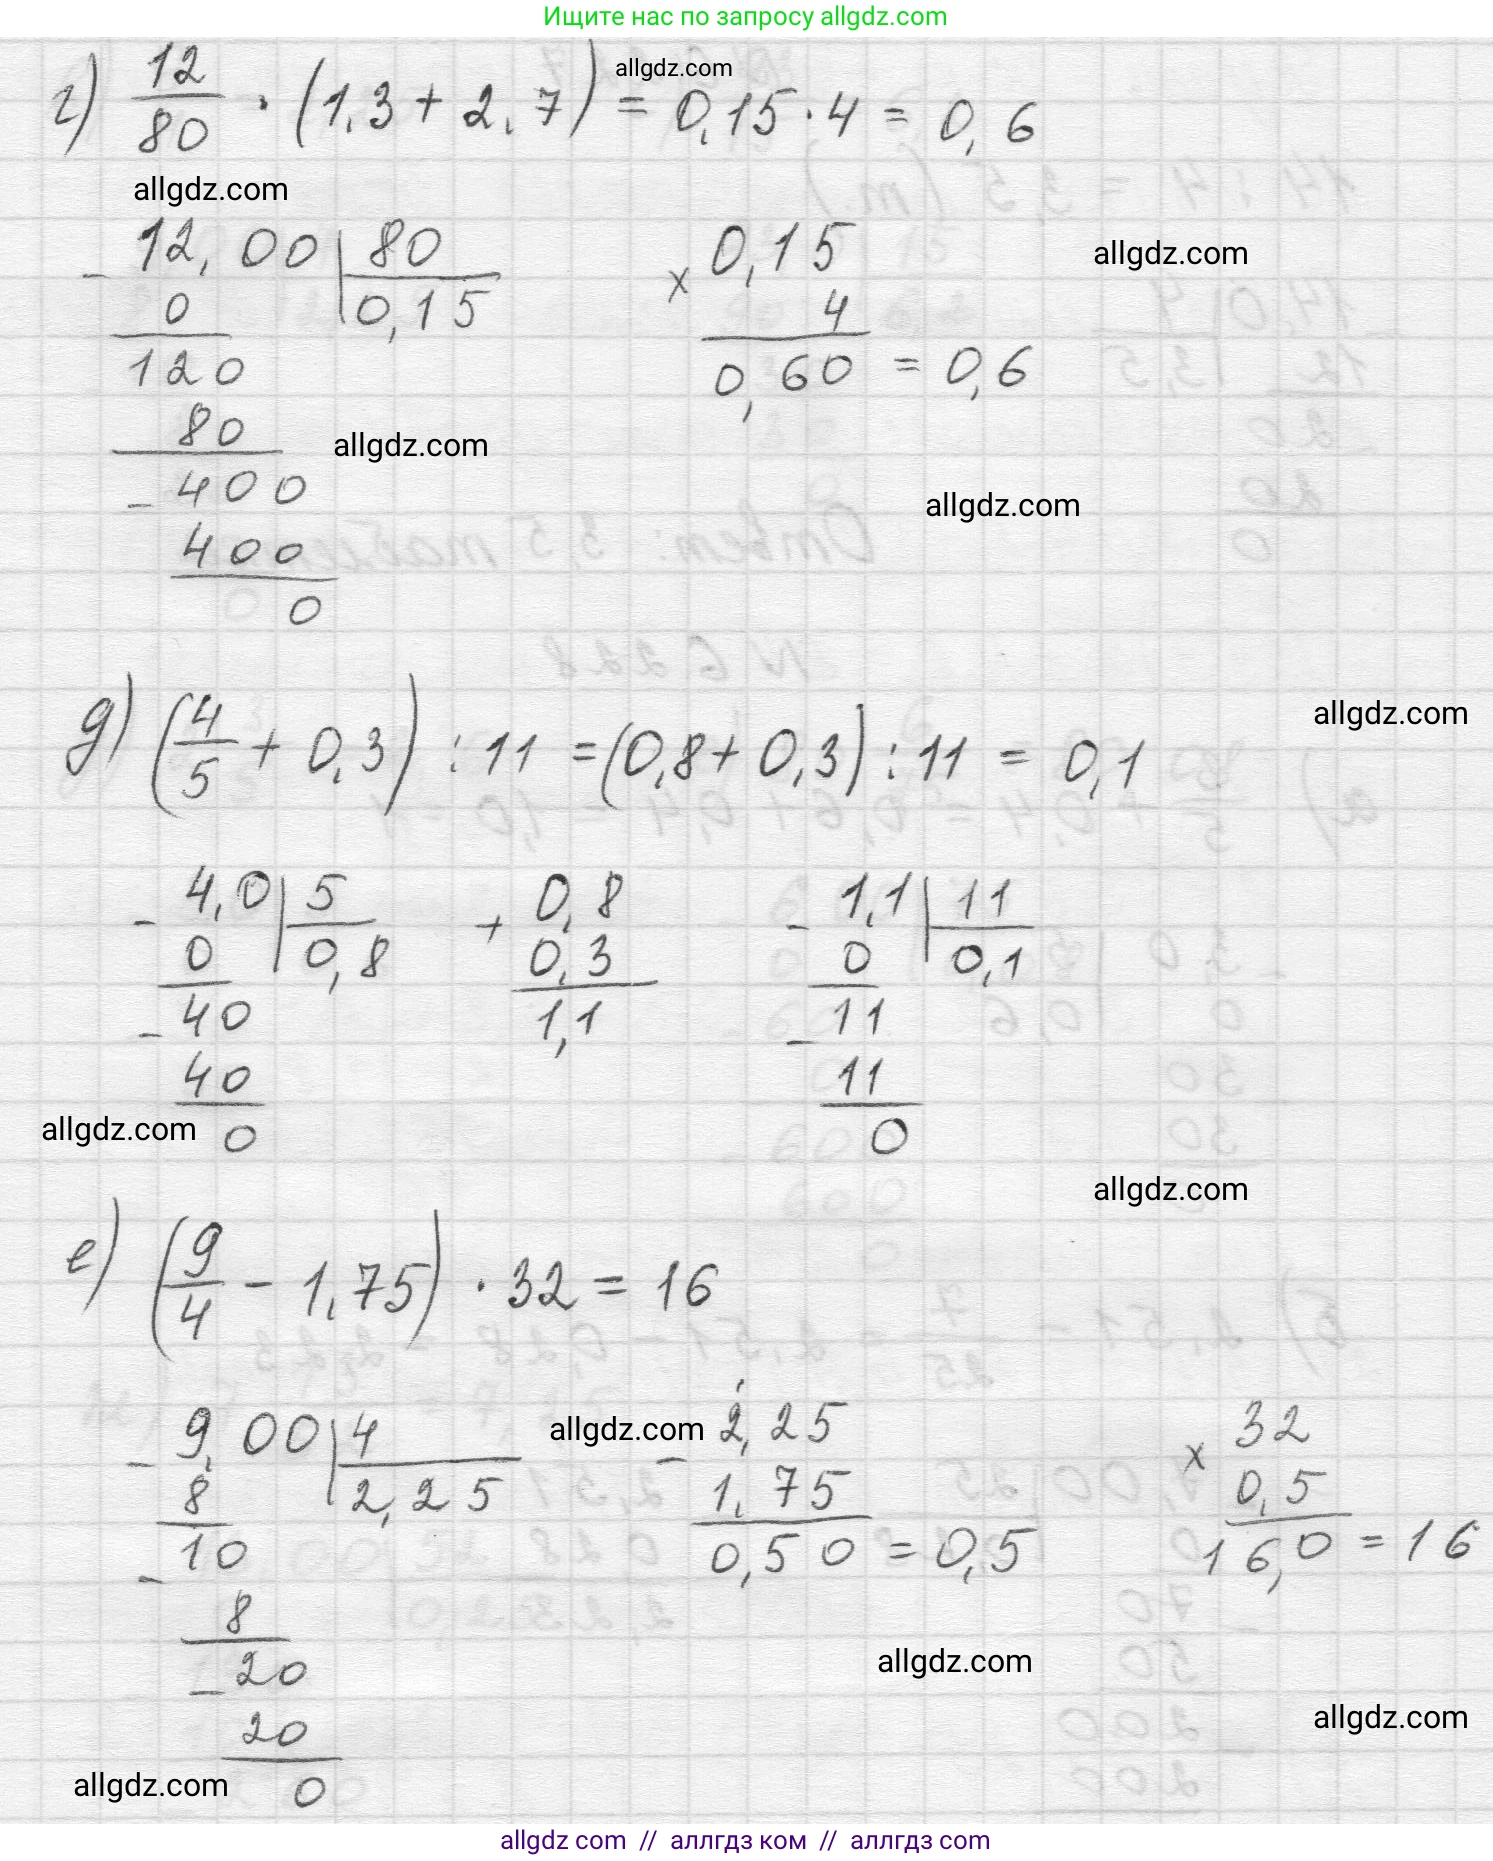 Ищите нас по запросу allgdz.com
allgdz.com
г) 12/80 · (1,3 + 2,7) = 0,15 · 4 = 0,6
allgdz.com
- 12,00 | 80
0 | 0,15
120
80
- 400
400
0
× 0,15
4
0,60 = 0,6
allgdz.com
allgdz.com
allgdz.com
allgdz.com
д) (4/5 + 0,3) : 11 = (0,8 + 0,3) : 11 = 0,1
- 4,0 | 5
0 | 0,8
- 40
40
0
+ 0,8
0,3
1,1
- 1,1 | 11
0 | 0,1
- 11
11
0
allgdz.com
allgdz.com
е) (9/4 - 1,75) · 32 = 16
- 9,00 | 4
8 | 2,25
- 10
8
- 20
20
0
allgdz.com
- 2,25
1,75
0,50 = 0,5
× 32
0,5
16,0 = 16
allgdz.com
allgdz.com
allgdz.com
allgdz com // аллгдз ком // аллгдз com